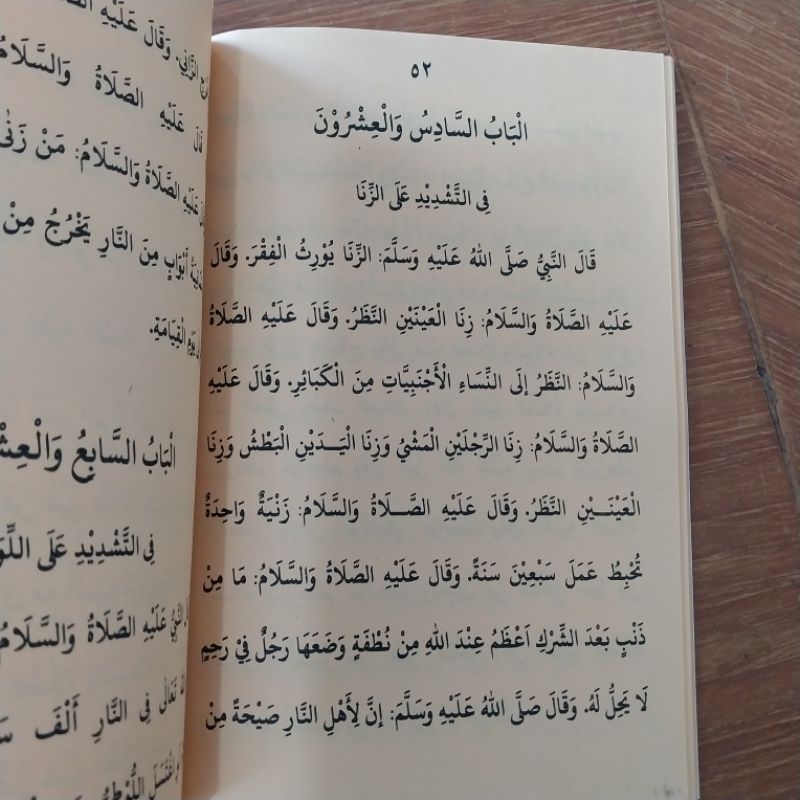 ٥٢
الْبَابُ السَّادِسُ وَالْعِشْرُوْنَ
فِى التَّشْدِيْدِ عَلَى الزِّنَا
قَالَ النَّبِيُّ صَلَّى اللهُ عَلَيْهِ وَسَلَّمَ: الزِّنَا يُوْرِثُ الْفِقْرَ. وَقَالَ
عَلَيْهِ الصَّلَاةُ وَالسَّلَامُ: زِنَا الْعَيْنَيْنِ النَّظَرُ. وَقَالَ عَلَيْهِ الصَّلَاةُ
وَالسَّلَامُ: النَّظَرُ إِلَى النِّسَاءِ الْأَجْنَبِيَّاتِ مِنَ الْكَبَائِرِ. وَقَالَ عَلَيْهِ
الصَّلَاةُ وَالسَّلَامُ: زِنَا الرِّجْلَيْنِ الْمَشْيُ وَزِنَا الْيَـدَيْنِ الْبَطْشُ وَزِنَا
الْعَيْنَـيْنِ النَّظَرُ. وَقَالَ عَلَيْهِ الصَّـلَاةُ وَالسَّلَامُ: زَنْيَةٌ وَاحِدَةٌ
تُحْبِطُ عَمَلَ سَبْعِيْنَ سَنَةً. وَقَالَ عَلَيْهِ الصَّلَاةُ وَالسَّلَامُ: مَا مِنْ
ذَنْبٍ بَعْدَ الشِّرْكِ اَعْظَمُ عِنْدَ اللهِ مِنْ نُطْفَةٍ وَضَعَهَا رَجُلٌ فِيْ رَحِمٍ
لَا يَحِلُّ لَهُ. وَقَالَ صَلَّى اللهُ عَلَيْهِ وَسَلَّمَ: إِنَّ لِأَهْلِ النَّارِ صَيْحَةً مِنْ
الزَّانِي. وَقَالَ عَلَيْهِ
قَالَ عَلَيْهِ الصَّلَاةُ وَالسَّلَامُ
عَلَيْهِ الصَّلَاةُ وَالسَّلَامُ: مَنْ زَنَى
أَبْوَابٍ مِنَ النَّارِ يَخْرُجُ مِنْ
يَوْمِ الْقِيَامَةِ.
الْبَابُ السَّابِعُ
فِى التَّشْدِيْدِ عَلَى
النَّبِيُّ عَلَيْهِ الصَّلَاةُ وَالسَّلَامُ
تَعَالَى فِى النَّارِ أَلْفَ